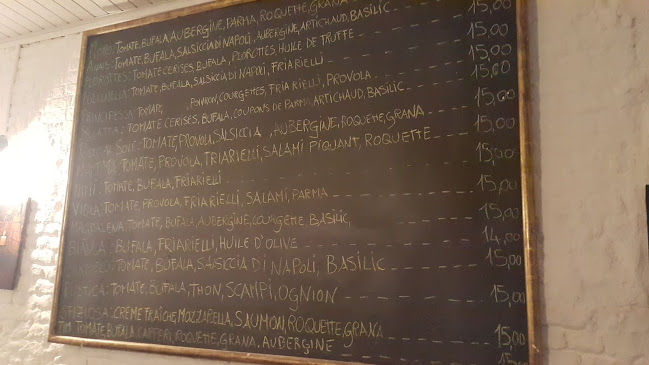 TOMATE, BUFALA, AUBERGINE, PARMA, ROQUETTE, GRANA
TOMATE, BUFALA, SALSICCIA DI NAPOLI, AUBERGINE, ARTICHAUD, BASILIC 15,00
TOMATE CERISES, BUFALA, HUILE DE TRUFFE 15,00
TOMATE, BUFALA, SALSICCIA DI NAPOLI, FRIARIELLI 15,00
TOMATE, POIVRON, COURGETTES, FRIARIELLI, PROVOLA 15,00
TOMATE CERISES, BUFALA, COUPONS DE PARMA, ARTICHAUD, BASILIC 15,00
SOLE: TOMATE, PROVOLA, SALSICCIA, AUBERGINE, ROQUETTE, GRANA 15,00
TOMATE, PROVOLA, TRIARIELLI, SALAMI PIQUANT, ROQUETTE 15,00
TOMATE, BUFALA, FRIARIELLI 15,00
VIOLA: TOMATE, PROVOLA, FRIARIELLI, SALAMI, PARMA 15,00
TOMATE, BUFALA, AUBERGINE, COURGETTE, BASILIC, 15,00
BUFALA, FRIARIELLI, HUILE D'OLIVE 14,00
TOMATE, BUFALA, SALSICCIA DI NAPOLI, BASILIC 15,00
TOMATE, BUFALA, THON, SCAMPI, OGNION 15,00
CREME FRAÎCHE MOZZARELLA, SAUMON, ROQUETTE, GRANA 15,00
TOMATE, BUFALA, CAPPERI, ROQUETTE, GRANA, AUBERGINE 15,00